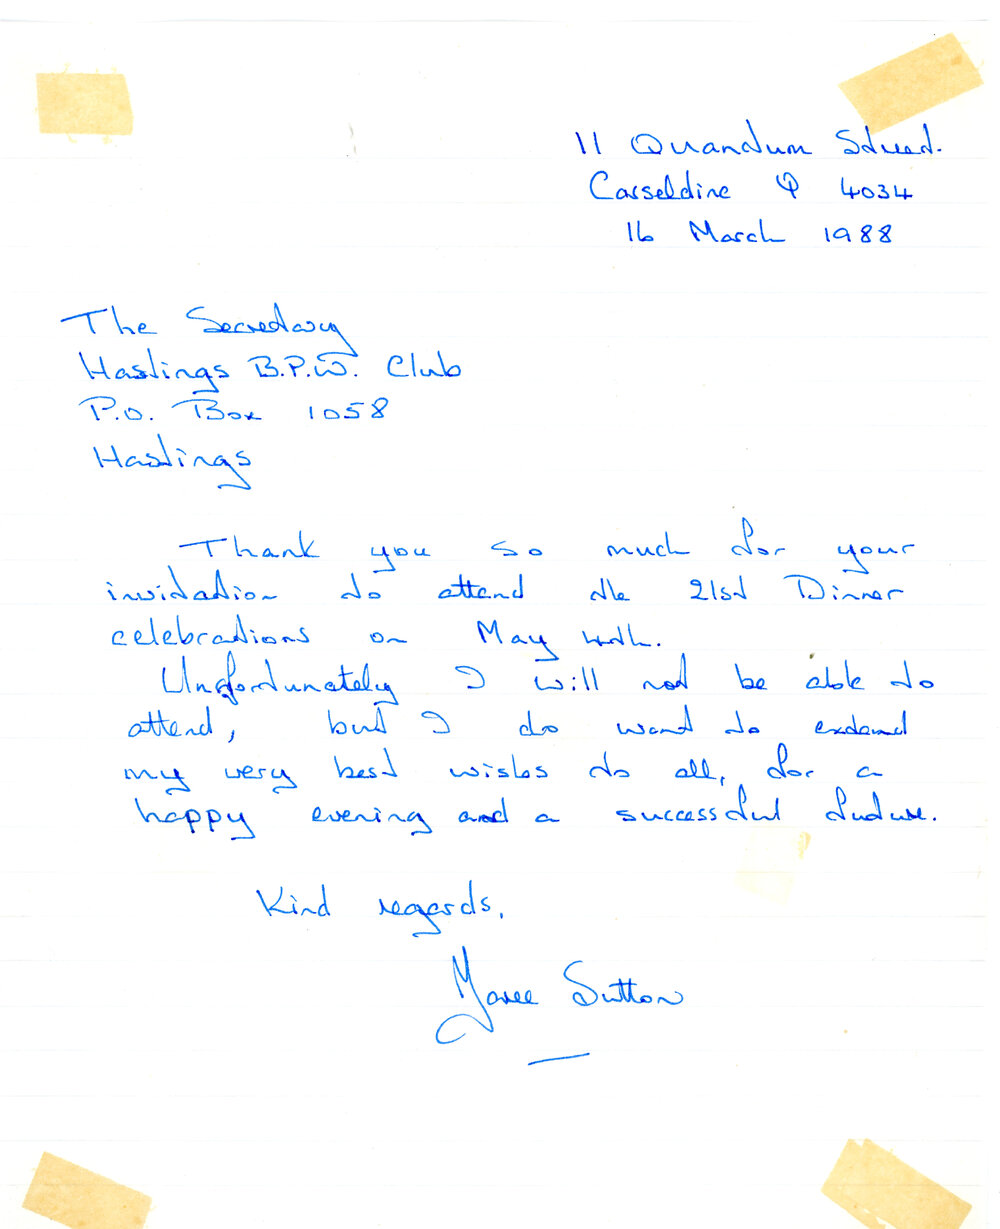 11 Quandum Street.
Carseldine Q 4034
16 March 1988
The Secretary
Hastings B.P.W. Club
P.O. Box 1058
Hastings
Thank you so much for your
invitation to attend the 21st Dinner
celebrations on May 4th.
Unfortunately I will not be able to
attend, but I do want to extend
my very best wishes to all, for a
happy evening and a successful future.
Kind regards,
Maree Sutton